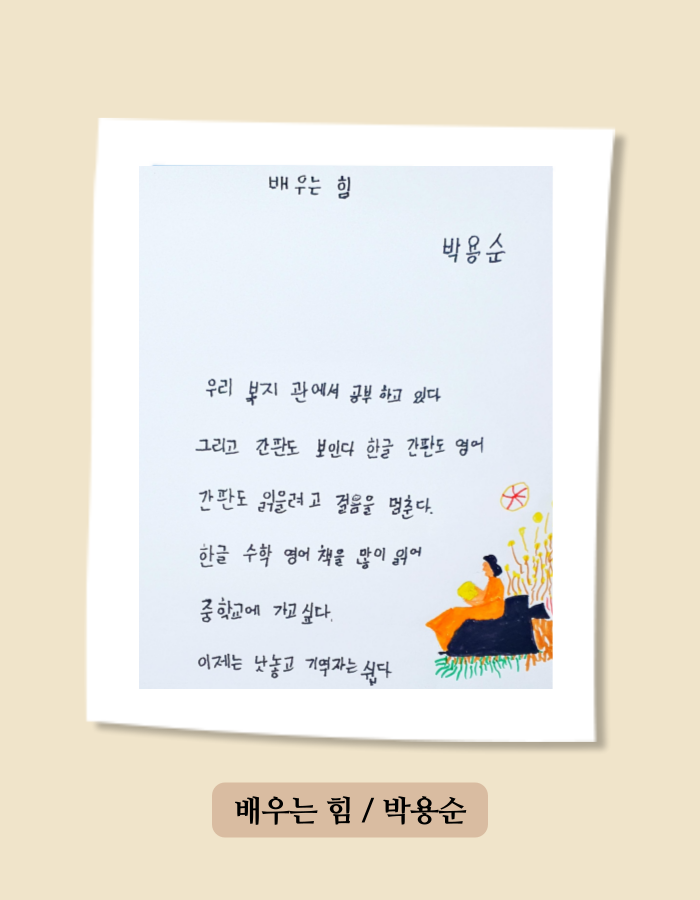 배우는 힘
박용순
우리 복지 관에서 공부 하고 있다
그리고 간판도 보인다 한글 간판도 영어
간판도 읽을려고 걸음을 멈춘다.
한글 수학 영어 책을 많이 읽어
중학교에 가고 싶다.
이제는 낫놓고 기역자는 쉽다
배우는 힘 / 박용순